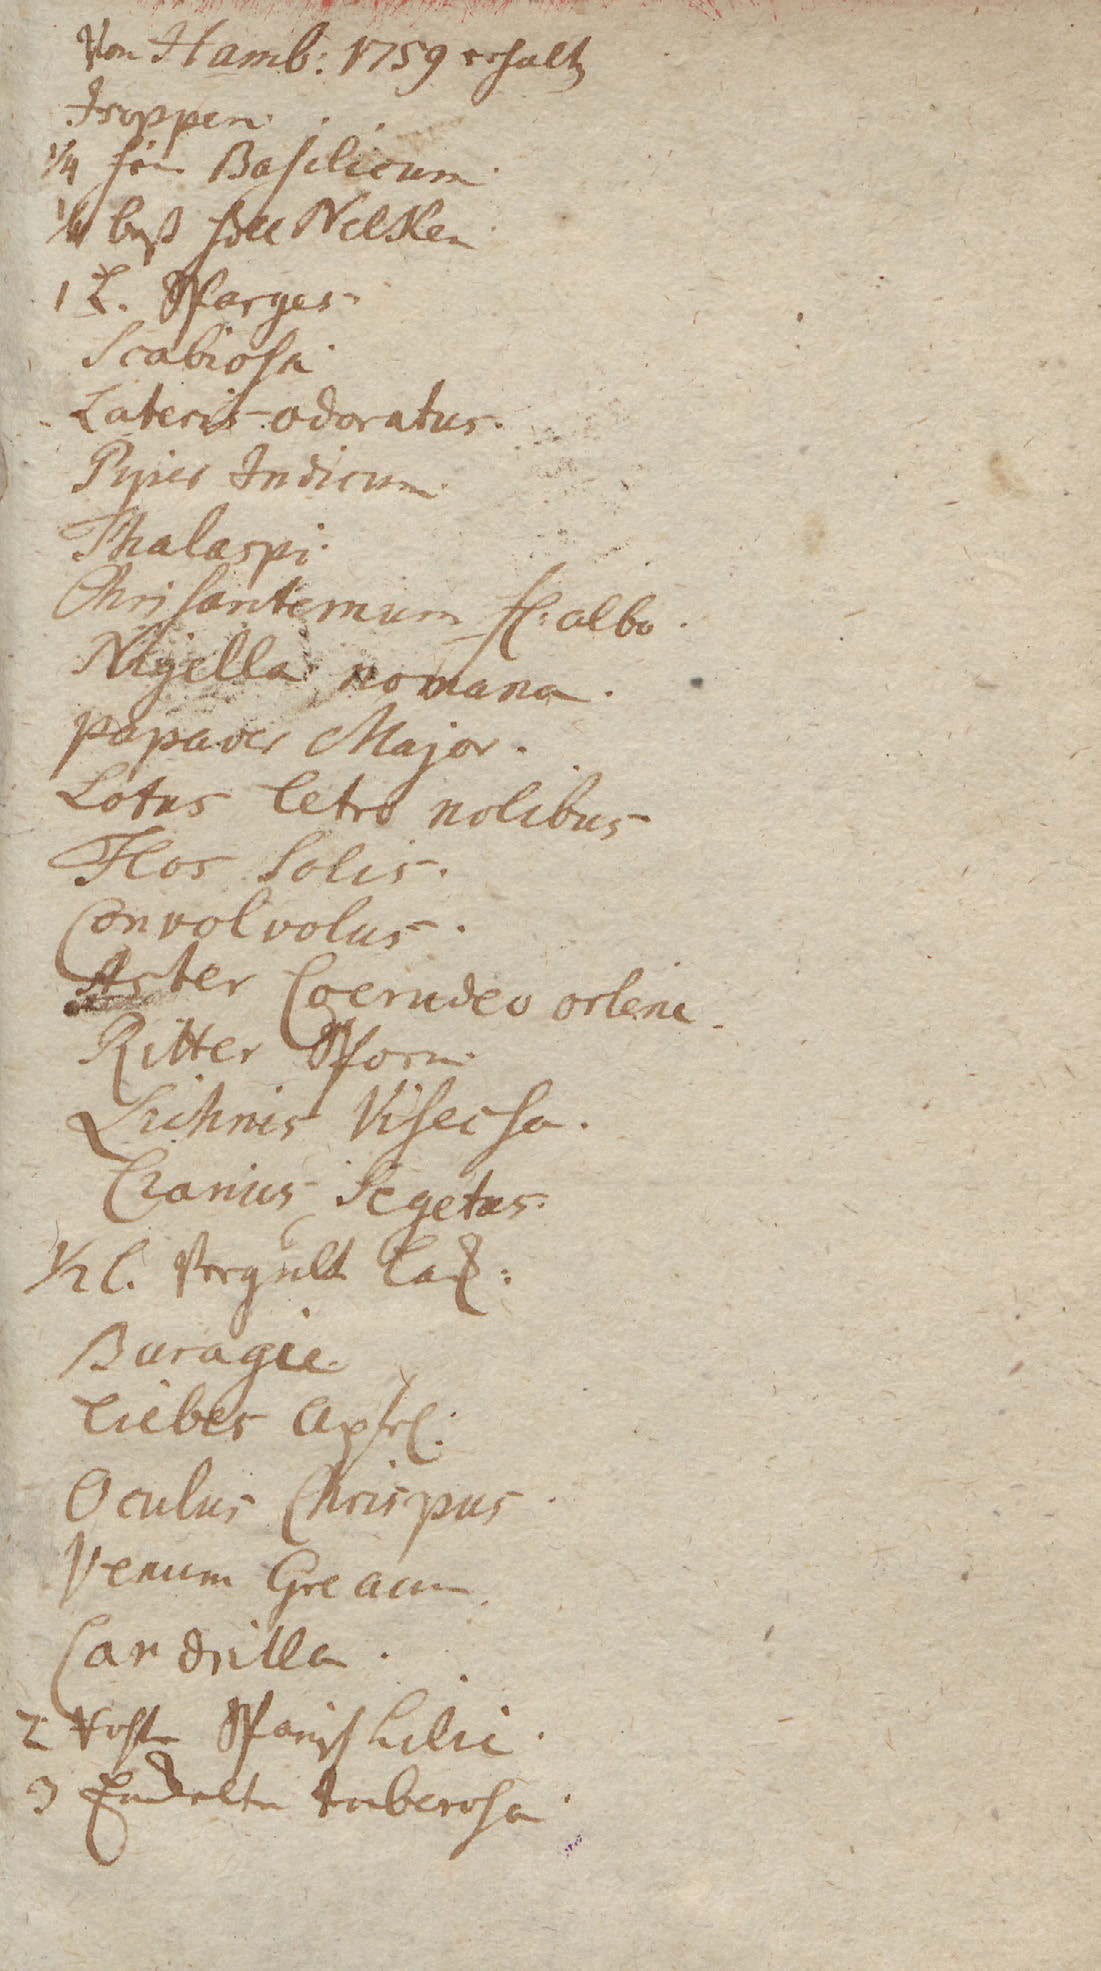 Von Hamb: 1759 erhalt
Isoppen
1/4 fein Basilicum
1/4 best foll Nelken
1 L. Sparges
Scabiosa
Lateris odoratus.
Pipier Indicum
Thalaspi.
Chrisantemum fl: albo.
Nigella romana.
papaver Major.
Lotus Cetro nolibus
Flos Solis.
Convolvolus.
Aster Coerudeo orlene.
Ritter Sporn
Lichnis Viscosa.
Cranius Segetus.
1/2 l. Vergult
Buragie
Liebes Apfel.
Oculus Chrispus
Venum Greaum
Cardrilla.
2 Spanisch Lilie.
3 Tuberosa